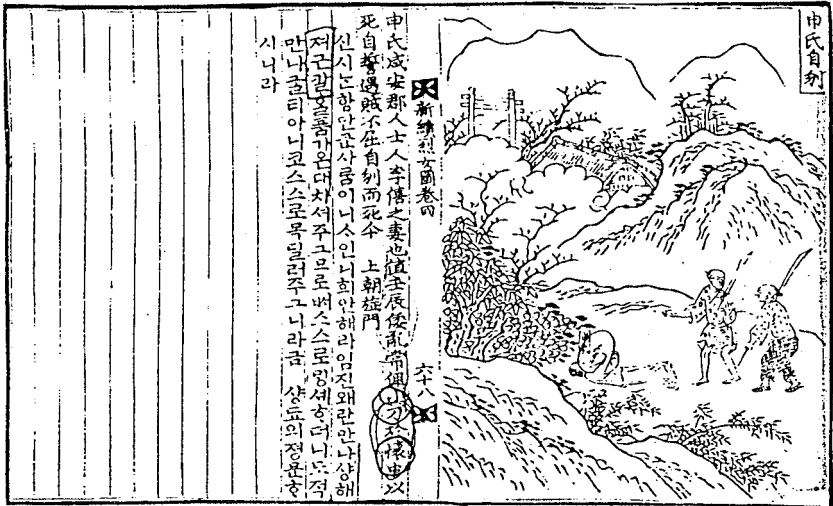 申氏自刎
新續烈女圖卷四
六十八
申氏咸安郡人士人李僖之妻也値壬辰倭亂常佩小刀於懷中以
死自誓遇賊不屈自刎而死今 上朝旌門
신시는함안군사룸이니人인니희안해라임진왜란만나샹해
져근갈을품가온대차셔주그므로써스스로밍셰하더니도적
만나굴티아니코스스로목딜러주그니라금 샹됴의졍문하
시니라